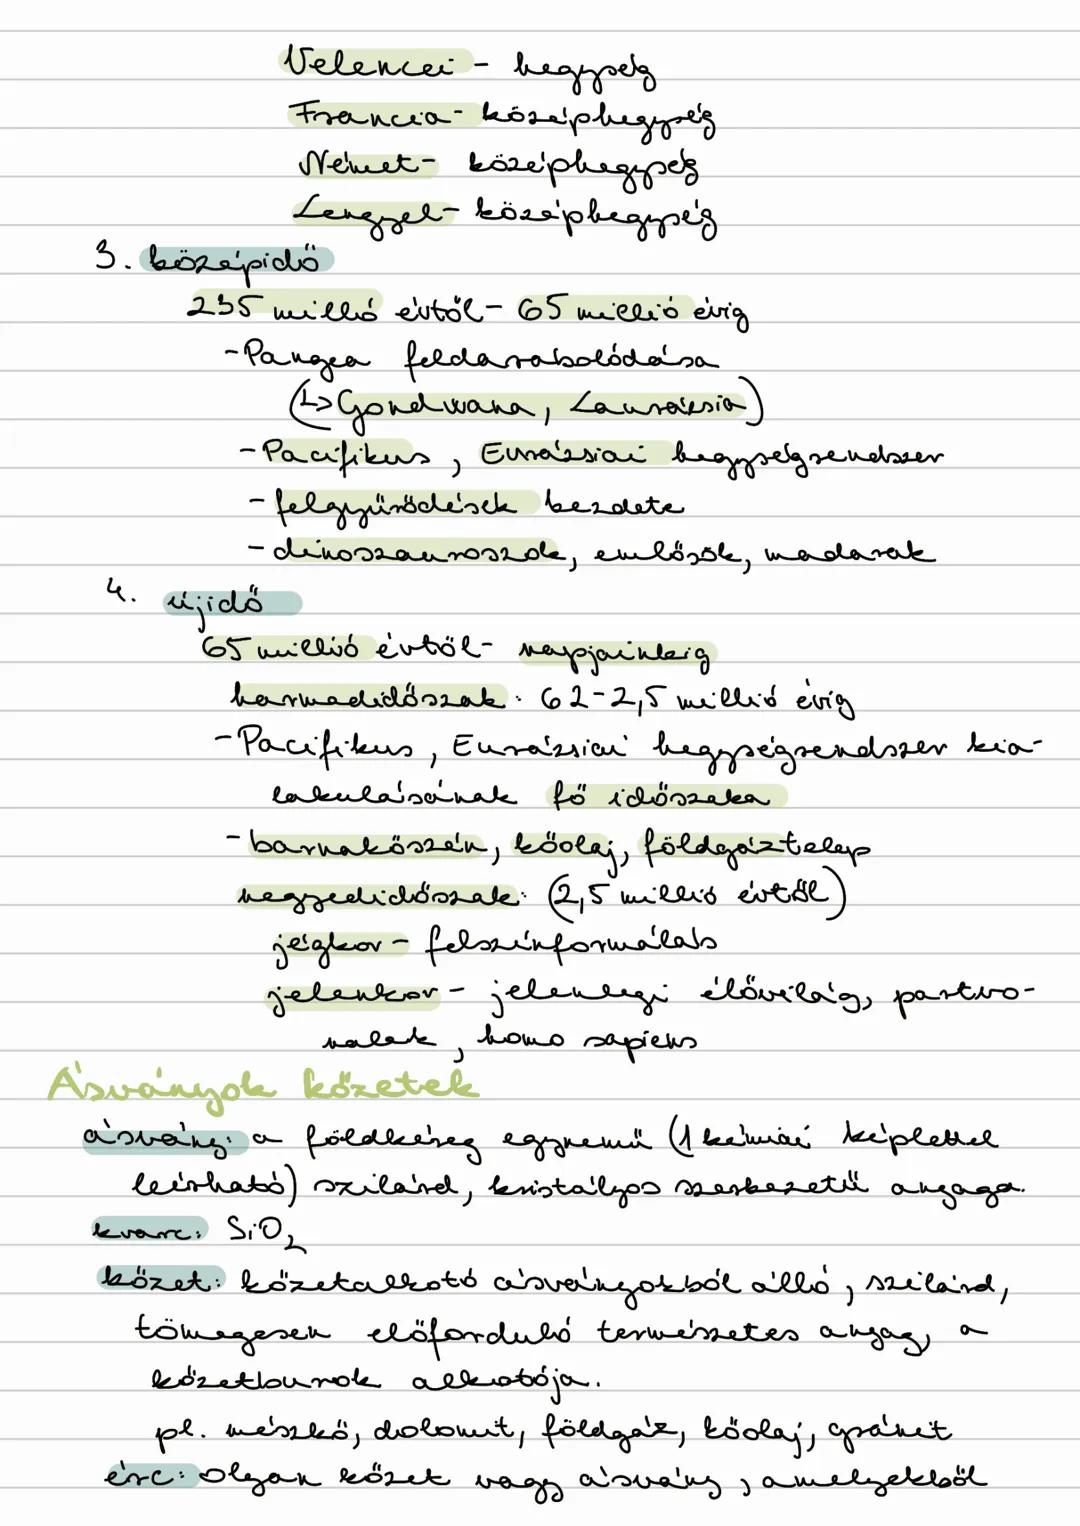 Velencei - hegység
Francia - középhegység
Német - középhegység
Lengyel - középhegység
3. középidő
235 millió évtől - 65 millió évig
- Pangea feldarabolódása
(↳ Gondwana, Laurázsia)
- Pacifikus, Eurázsiai hegységrendszer
- felgyűrődések kezdete
- dinoszauroszok, emlősök, madarak
4. újidő
65 millió évtől - napjainkig
harmadidőszak: 62-2,5 millió évig
- Pacifikus, Eurázsiai hegységrendszer kia-
lakulásának fő időszaka
- barnakőszén, kőolaj, földgáztelep
negyedidőszak: (2,5 millió évtől)
jégkor - felszínformálás
jelenkor - jelenlegi élővilág, partvo-
nalak, homo sapiens
Ásványok kőzetek
ásvány: a földkéreg egynemű (1 kémiai képlettel
leírható) szilárd, kristályos szerkezetű anyaga.
kvarc: SiO₂
kőzet: kőzetalkotó ásványokból álló, szilárd,
tömegesen előforduló természetes anyag, a
kőzetburok alkotója.
pl. mészkő, dolomit, földgáz, kőolaj, gránit
érc: olyan kőzet vagy ásvány, amelyekből